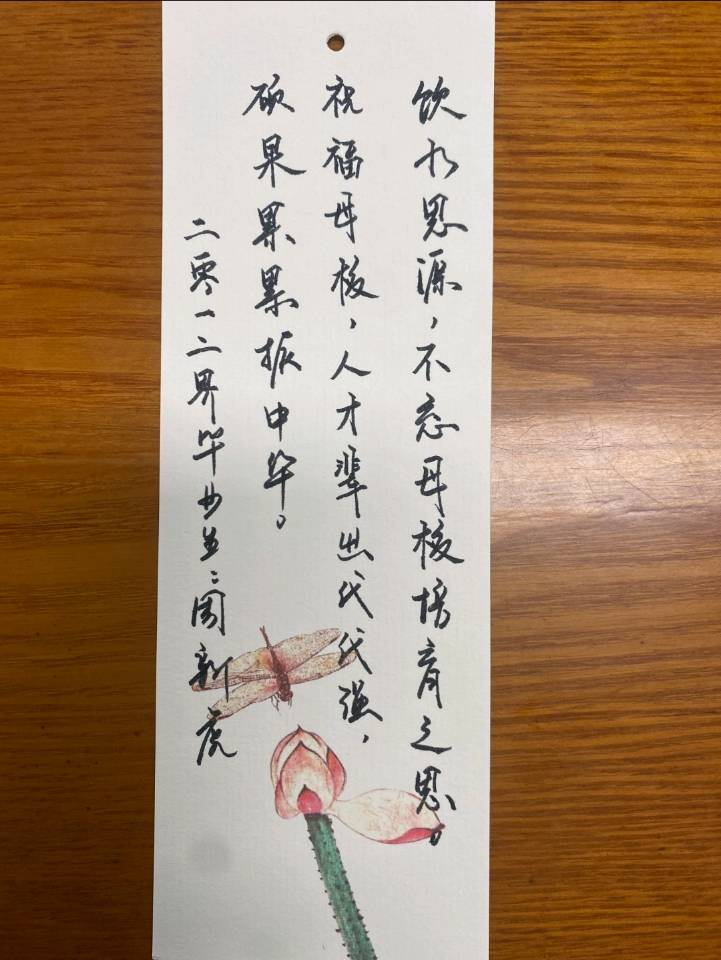 饮水思源，不忘母校培育之恩。
祝福母校，人才辈出代代强，
硕果累累振中华。
二零一二界毕业生：周新虎